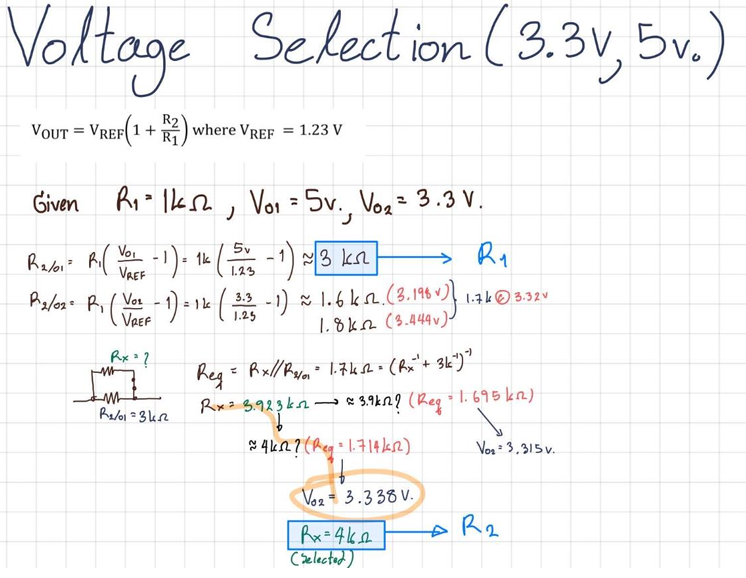 Voltage Selection (3.3V, 5v.)
V_OUT = V_REF(1 + R2/R1) where V_REF = 1.23 V
Given R1 = 1kΩ , Vo1 = 5v., Vo2 = 3.3 V.
R2/o1 = R1(Vo1/VREF - 1) = 1k (5v/1.23 - 1) ≈ 3 kΩ → R1
R2/o2 = R1(Vo2/VREF - 1) = 1k (3.3/1.23 - 1) ≈ 1.6kΩ.(3.198v) } 1.7k @ 3.32v
1.8kΩ (3.444v)
Rx = ?
R2/o1 = 3kΩ
Req = Rx//R2/o1 = 1.7kΩ = (Rx⁻¹ + 3k⁻¹)⁻¹
Rx = 3.923kΩ → ≈ 3.9kΩ? (Req = 1.695kΩ)
≈ 4kΩ? (Req = 1.714kΩ)
Vo2 = 3.315v.
Vo2 = 3.338v.
Rx = 4kΩ → R2
(Selected)